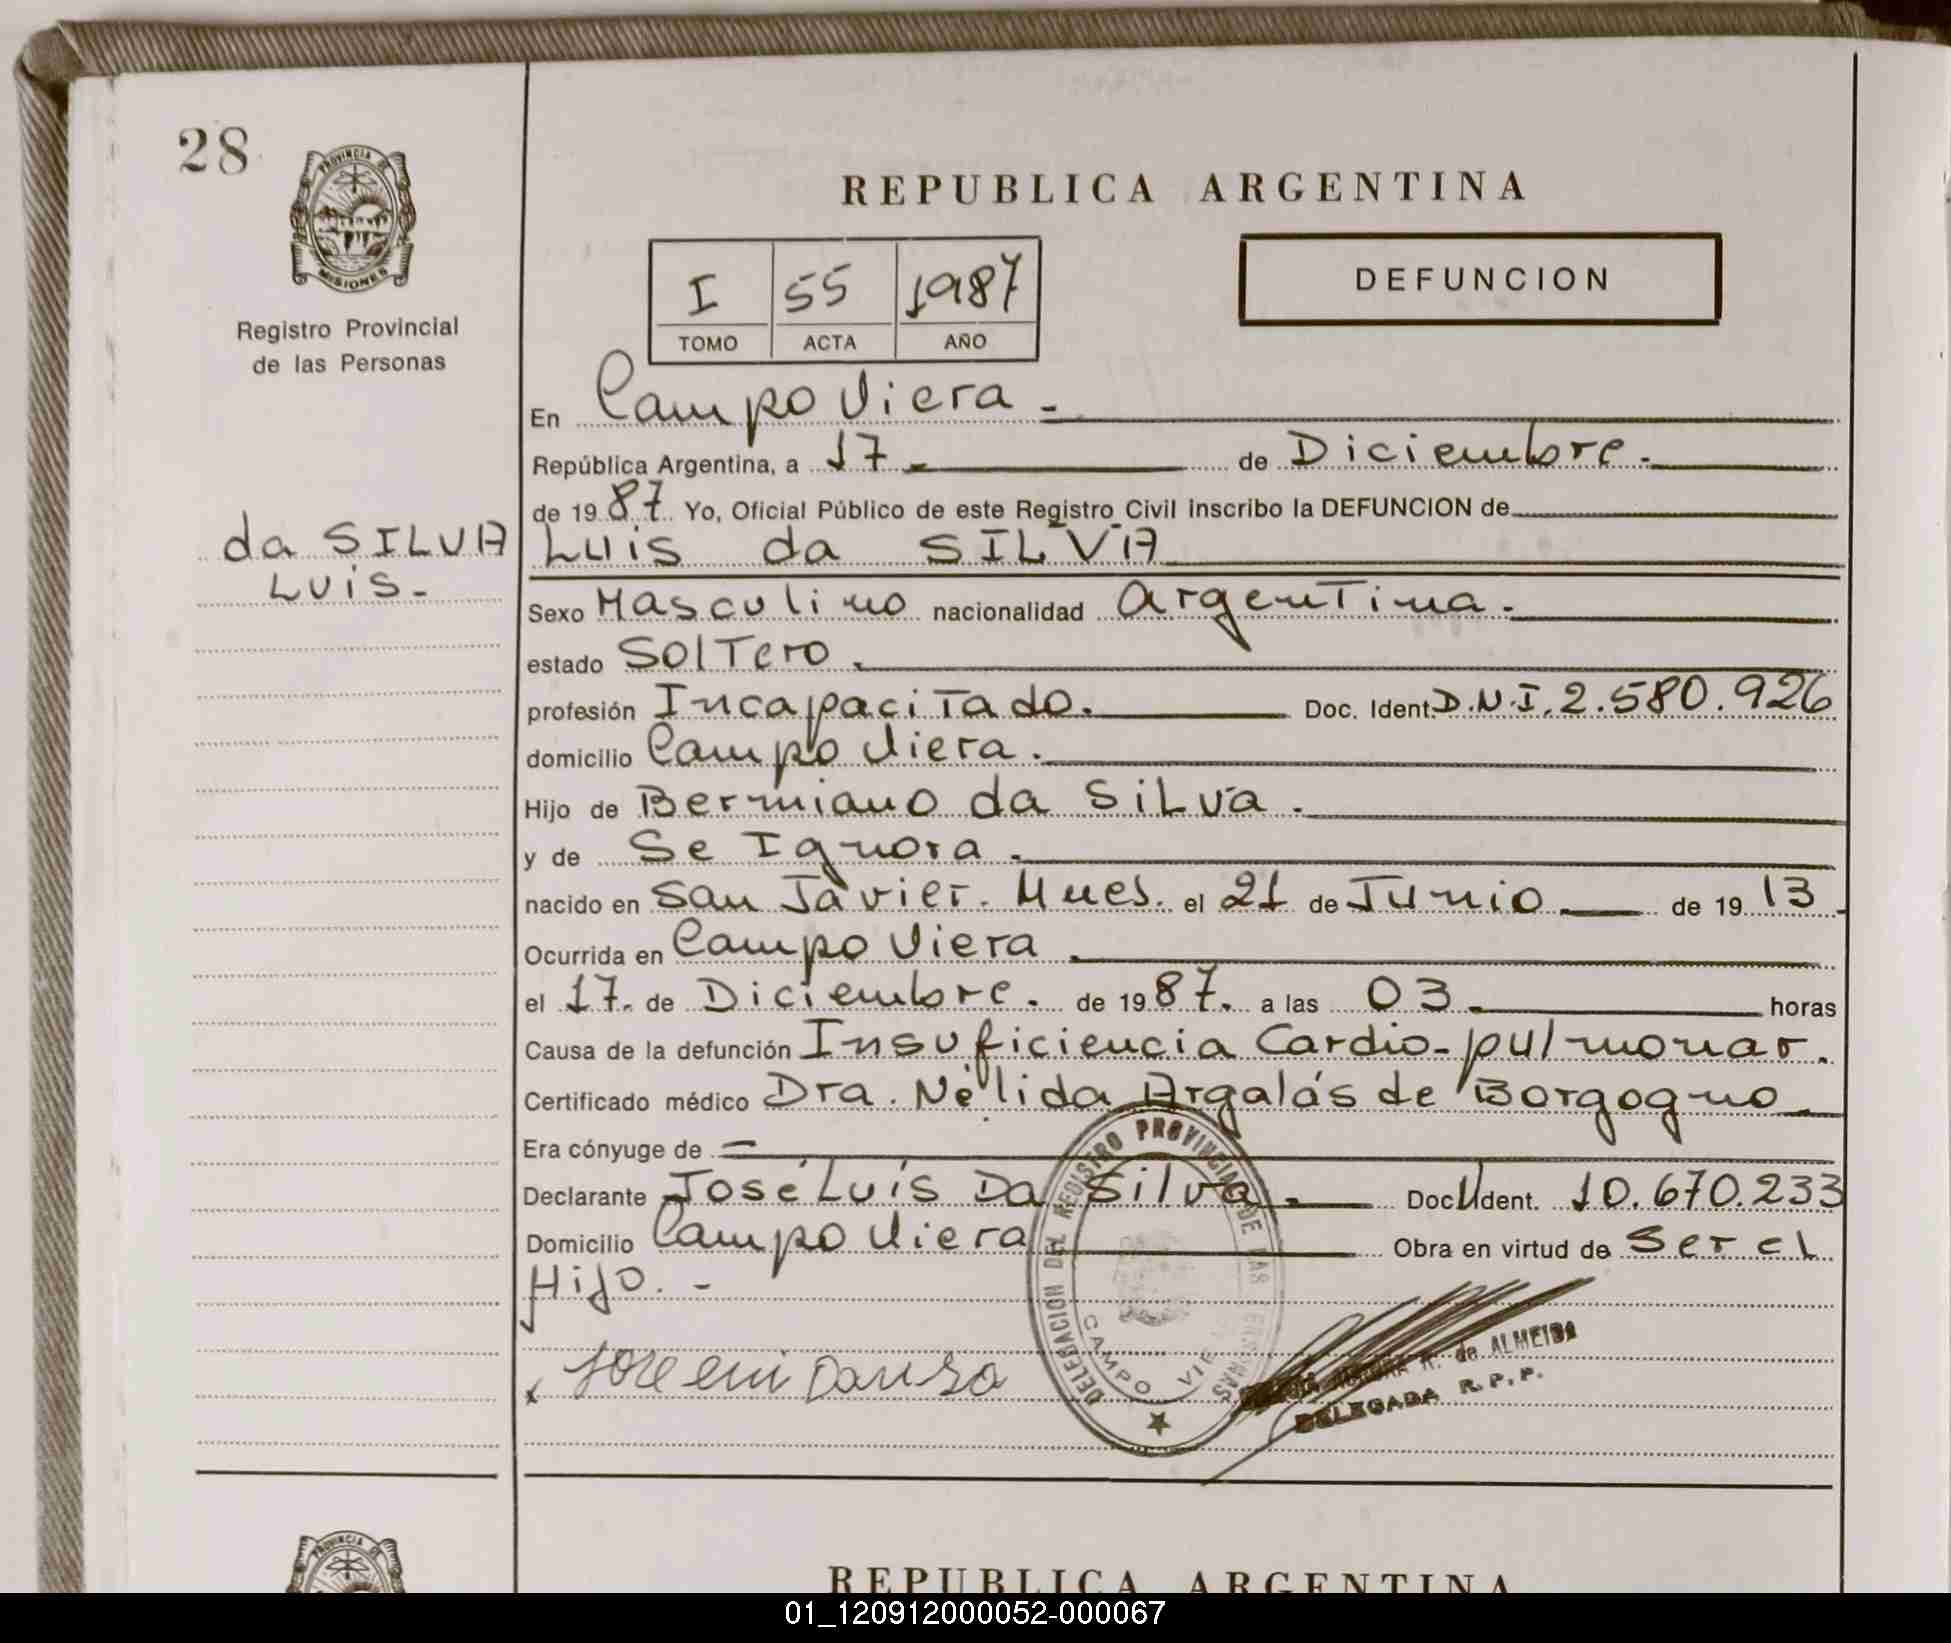 28
PROVINCIA DE
MISIONES
Registro Provincial
de las Personas
da SILVA
LUIS.-
REPUBLICA ARGENTINA
I 55 1987
TOMO ACTA AÑO
DEFUNCION
En Campo Viera.-
República Argentina, a 17.- de Diciembre.-
de 1987. Yo, Oficial Público de este Registro Civil inscribo la DEFUNCION de
LUIS da SILVA
Sexo Masculino nacionalidad Argentina.
estado Soltero.
profesión Incapacitado. Doc. Ident. D.N.I. 2.580.926
domicilio Campo Viera.
Hijo de Bermiano da Silva.
y de Se Ignora.
nacido en San Javier. Mnes. el 21 de Junio de 1913.
Ocurrida en Campo Viera.
el 17. de Diciembre. de 1987. a las 03. horas
Causa de la defunción Insuficiencia Cardio-pulmonar.
Certificado médico Dra. Nélida Argalás de Borgogno.
Era cónyuge de -
Declarante José Luis Da Silva. Doc. Ident. 10.670.233
Domicilio Campo Viera Obra en virtud de Ser el
Hijo.-
DELEGACION DEL REGISTRO PROVINCIAL DE LAS PERSONAS
CAMPO VIERA
x
de ALMEIDA
DELEGADA R.P.P.
PROVINCIA DE
REPUBLICA ARGENTINA
01_120912000052-000067